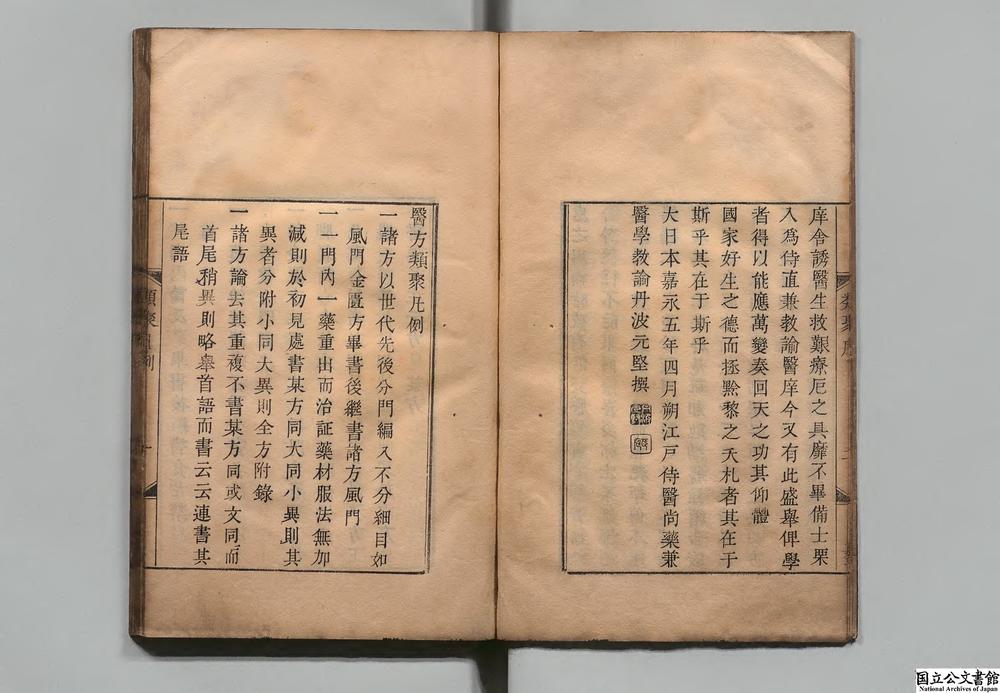 庠舍誘醫生救艱療厄之具靡不畢備士栗
入爲侍直兼教諭醫庠今又有此盛舉俾學
者得以能應萬變奏回天之功其仰體
國家好生之德而拯黔黎之夭札者其在于
斯乎其在于斯乎
大日本嘉永五年四月朔江戸侍醫尚藥兼
醫學教諭丹波元堅撰
醫方類聚凡例
一諸方以世代先後分門編入不分細目如
風門金匱方畢書後繼書諸方風門
一一門內一藥重出而治証藥材服法無加
減則於初見處書某方同大同小異則其
異者分附小同大異則全方附錄
一諸方論去其重複不書某方同或文同而
首尾稍異則略舉首語而書云云連書其
尾語
国立公文書館
National Archives of Japan